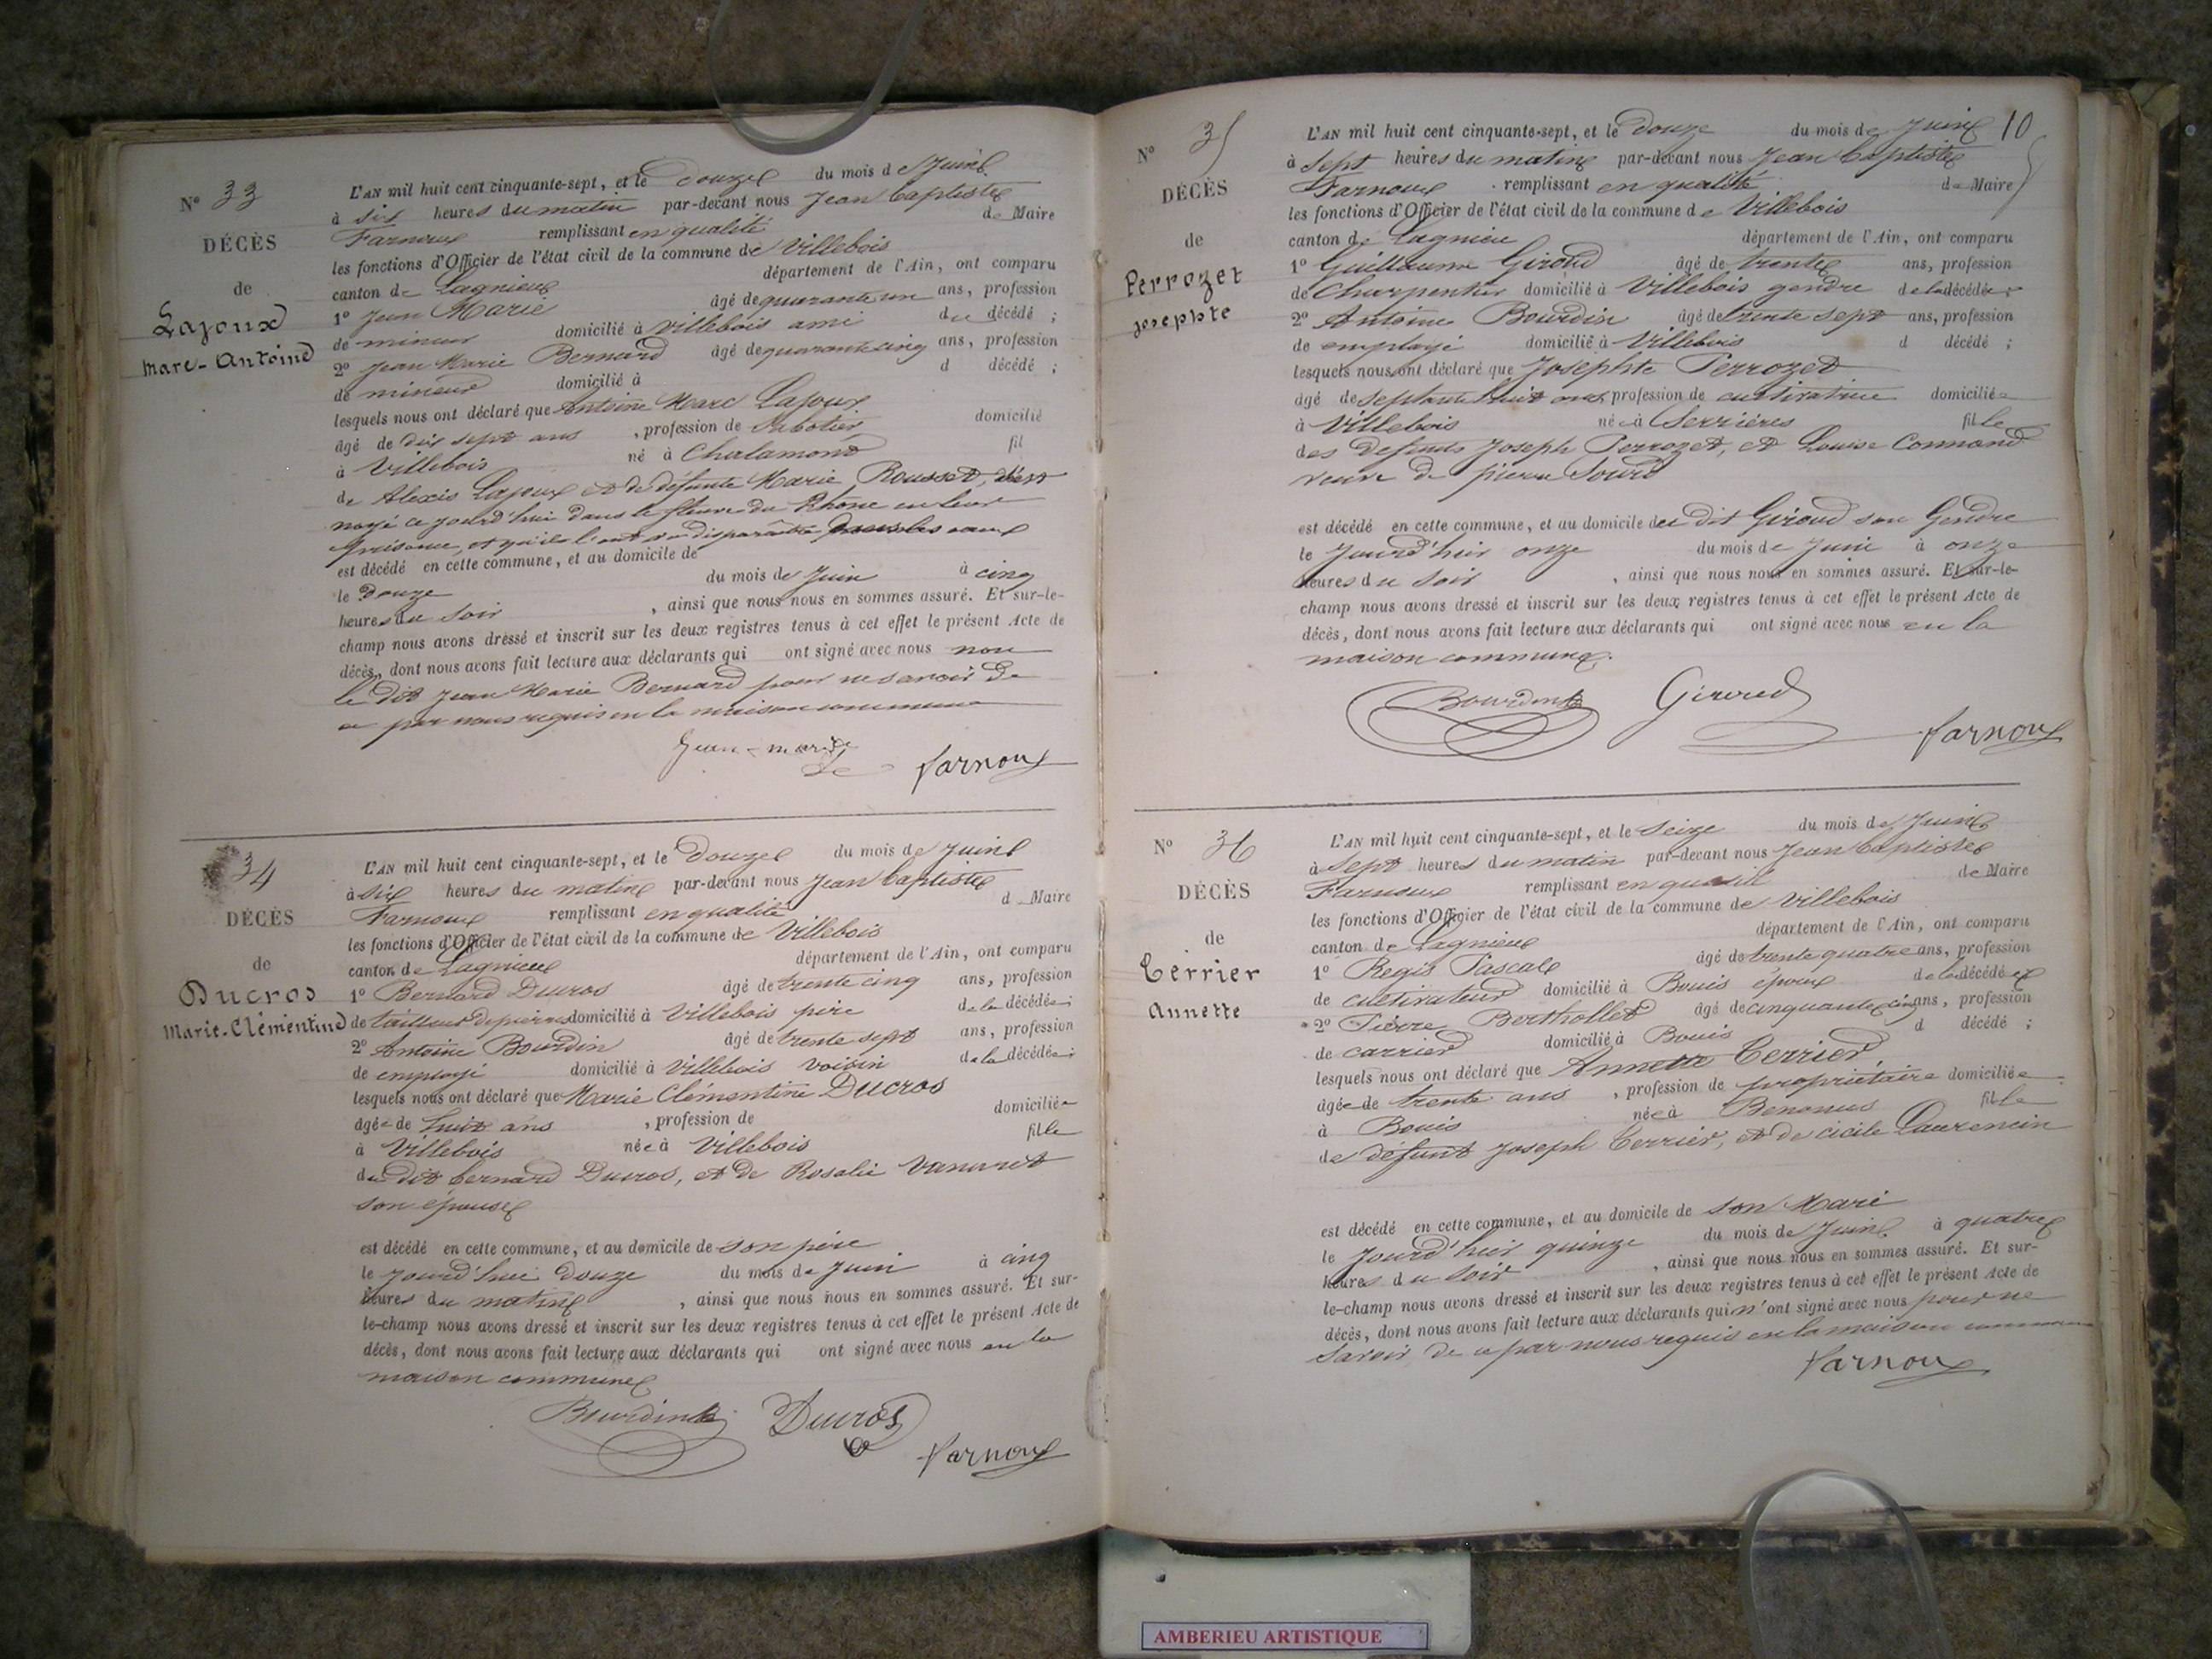 N° 33
DÉCÈS
de
Lajoux
Marc-Antoine
L'AN mil huit cent cinquante-sept, et le douze du mois de Juin
à six heures du matin par-devant nous Jean Baptiste
Farnoux remplissant en qualité de Maire
les fonctions d'Officier de l'état civil de la commune de Villebois
canton de Lagnieu département de l'Ain, ont comparu
1° Jean Marie âgé de quarante un ans, profession
de mineur domicilié à Villebois ami du décédé ;
2° Jean Marie Bernard âgé de quarante cinq ans, profession
de mineur domicilié à d décédé ;
lesquels nous ont déclaré que Antoine Marc Lajoux
âgé de dix sept ans , profession de Sabotier domicilié
à Villebois né à Chalamond fil
de Alexis Lajoux et de défunte Marie Rousset, s'est
noyé ce jourd'hui dans le fleuve du Rhône en leur
présence, et qu'ils l'ont vu disparaître dans les eaux
est décédé en cette commune, et au domicile de
le douze du mois de Juin à cinq
heures du soir , ainsi que nous nous en sommes assuré. Et sur-le-
champ nous avons dressé et inscrit sur les deux registres tenus à cet effet le présent Acte de
décès, dont nous avons fait lecture aux déclarants qui ont signé avec nous non
le dit Jean Marie Bernard pour ne savoir de
ce par nous requis en la maison commune
Jean-marie
Farnoux
34
DÉCÈS
de
Ducros
Marie-Clémentine
L'AN mil huit cent cinquante-sept, et le douze du mois de Juin
à six heures du matin par-devant nous Jean Baptiste
Farnoux remplissant en qualité d Maire
les fonctions d'Officier de l'état civil de la commune de Villebois
canton de Lagnieu département de l'Ain, ont comparu
1° Bernard Ducros âgé de trente cinq ans, profession
de tailleur de pierres domicilié à Villebois père de la décédée ;
2° Antoine Bourdin âgé de trente sept ans, profession
de employé domicilié à Villebois voisin de la décédée ;
lesquels nous ont déclaré que Marie Clémentine Ducros
âgée de huit ans , profession de domiciliée
à Villebois née à Villebois fille
du dit Bernard Ducros, et de Rosalie
son épouse
est décédé en cette commune, et au domicile de son père
le jourd'hui douze du mois de Juin à cinq
heures du matin , ainsi que nous nous en sommes assuré. Et sur-
le-champ nous avons dressé et inscrit sur les deux registres tenus à cet effet le présent Acte de
décès, dont nous avons fait lecture aux déclarants qui ont signé avec nous en la
maison commune
Bourdin Ducros
Farnoux
10
N° 35
DÉCÈS
de
Perrozet
Josephte
L'AN mil huit cent cinquante-sept, et le douze du mois de Juin
à sept heures du matin par-devant nous Jean Baptiste
Farnoux remplissant en qualité de Maire
les fonctions d'Officier de l'état civil de la commune de Villebois
canton de Lagnieu département de l'Ain, ont comparu
1° Guillaume Giroud âgé de trente ans, profession
de Charpentier domicilié à Villebois gendre de la décédée ;
2° Antoine Bourdin âgé de trente sept ans, profession
de employé domicilié à Villebois d décédé ;
lesquels nous ont déclaré que Josephte Perrozet
âgé de septante huit ans, profession de cultivatrice domiciliée
à Villebois née à Serrières fille
des défunts Joseph Perrozet, et Louise Connand
veuve de pierre Sourd
est décédé en cette commune, et au domicile du dit Giroud son Gendre
le Jourd'hier onze du mois de Juin à onze
heures du soir , ainsi que nous nous en sommes assuré. Et sur-le-
champ nous avons dressé et inscrit sur les deux registres tenus à cet effet le présent Acte de
décès, dont nous avons fait lecture aux déclarants qui ont signé avec nous en la
maison commune.
Bourdin Giroud
Farnoux
N° 36
DÉCÈS
de
Terrier
Annette
L'AN mil huit cent cinquante-sept, et le Seize du mois de Juin
à sept heures du matin par-devant nous Jean Baptiste
Farnoux remplissant en qualité de Maire
les fonctions d'Officier de l'état civil de la commune de Villebois
canton de Lagnieu département de l'Ain, ont comparu
1° Regis Pascal âgé de trente quatre ans, profession
de cultivateur domicilié à Bouis époux de la décédée
2° Pierre Berthollet âgé de cinquante cinq ans, profession
de carrier domicilié à Bouis d décédé ;
lesquels nous ont déclaré que Annette Terrier
âgée de trente ans , profession de propriétaire domiciliée
à Bouis née à Benonces fille
de défunt Joseph Terrier, et de Cicile Laurencin
est décédé en cette commune, et au domicile de son Mari
le Jourd'hier quinze du mois de Juin à quatre
heures du soir , ainsi que nous nous en sommes assuré. Et sur-
le-champ nous avons dressé et inscrit sur les deux registres tenus à cet effet le présent Acte de
décès, dont nous avons fait lecture aux déclarants qui n'ont signé avec nous pour ne
savoir de ce par nous requis en la maison commune
Farnoux
AMBERIEU ARTISTIQUE